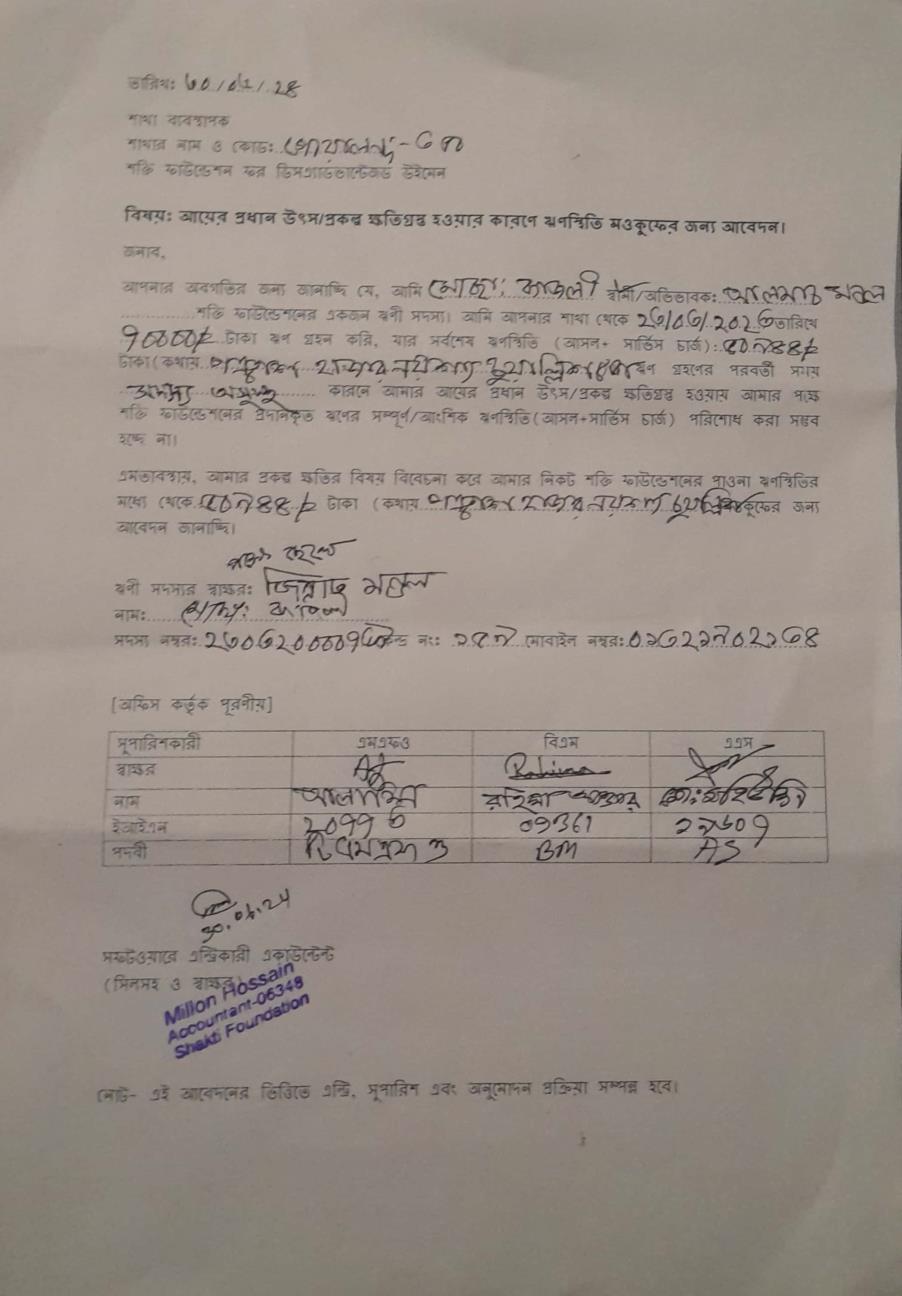 তারিখঃ ৩০/০৬/২৪
শাখা ব্যবস্থাপক
শাখার নাম ও কোডঃ
শক্তি ফাউন্ডেশন ফর ডিসএ্যাডভান্টেজড উইমেন
বিষয়ঃ আয়ের প্রধান উৎস/প্রকল্প ক্ষতিগ্রস্ত হওয়ার কারণে ঋণস্থিতি মওকুফের জন্য আবেদন।
জনাব,
আপনার অবগতির জন্য জানাচ্ছি যে, আমি মোছাঃ কাকলী স্বামী/অভিভাবকঃ মন্ডল
শক্তি ফাউন্ডেশনের একজন ঋণী সদস্য। আমি আপনার শাখা থেকে তারিখে
৭০০০০/= টাকা ঋণ গ্রহন করি, যার সর্বশেষ ঋণস্থিতি (আসল+ সার্ভিস চার্জ):৫০৯৪৪/=
টাকা (কথায় পঞ্চাশ হাজার নয়শত চুয়াল্লিশ ঋণ গ্রহণের পরবর্তী সময়
সদস্য অসুস্থ কারনে আমার আয়ের প্রধান উৎস/প্রকল্প ক্ষতিগ্রস্ত হওয়ায় আমার পক্ষে
শক্তি ফাউন্ডেশনের প্রদানকৃত ঋণের সম্পূর্ণ/আংশিক ঋণস্থিতি(আসল+সার্ভিস চার্জ) পরিশোধ করা সম্ভব
হচ্ছে না।
এমতাবস্থায়, আমার প্রকল্প ক্ষতির বিষয় বিবেচনা করে আমার নিকট শক্তি ফাউন্ডেশনের পাওনা ঋণস্থিতির
মধ্যে থেকে ৫০৯৪৪/= টাকা (কথায় পঞ্চাশ হাজার নয়শত চুয়াল্লিশ মওকুফের জন্য
আবেদন জানাচ্ছি।
ঋণী সদস্যের স্বাক্ষরঃ মন্ডল
নামঃ মোছাঃ কাকলী
সদস্য নম্বরঃ নংঃ মোবাইল নম্বরঃ
[অফিস কর্তৃক পূরণীয়]
সুপারিশকারী এমএফও বিএম এএস
স্বাক্ষর
নাম
ইআইএন 09361
পদবী BM AS
30.06.24
সফটওয়্যারে এন্ট্রিকারী একাউন্টেন্ট
(সিলসহ ও স্বাক্ষর)
Millon Hossain
Accountant-06348
Shakti Foundation
নোট- এই আবেদনের ভিত্তিতে এন্ট্রি, সুপারিশ এবং অনুমোদন প্রক্রিয়া সম্পন্ন হবে।